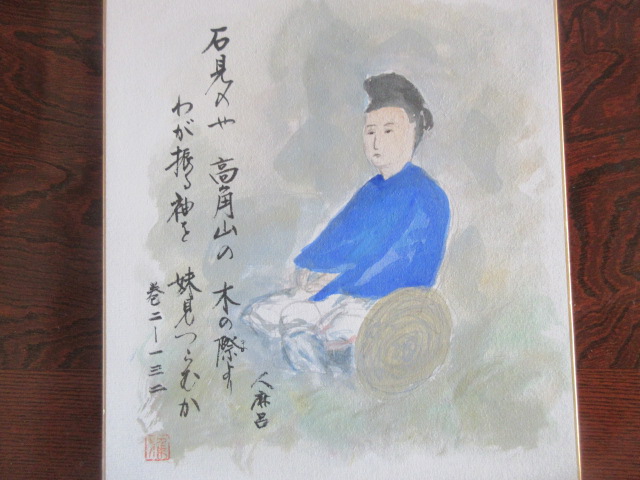 石見のや 高角山の 木の際より
わが振る袖を 妹見つらむか
人麻呂
巻二ー一三二